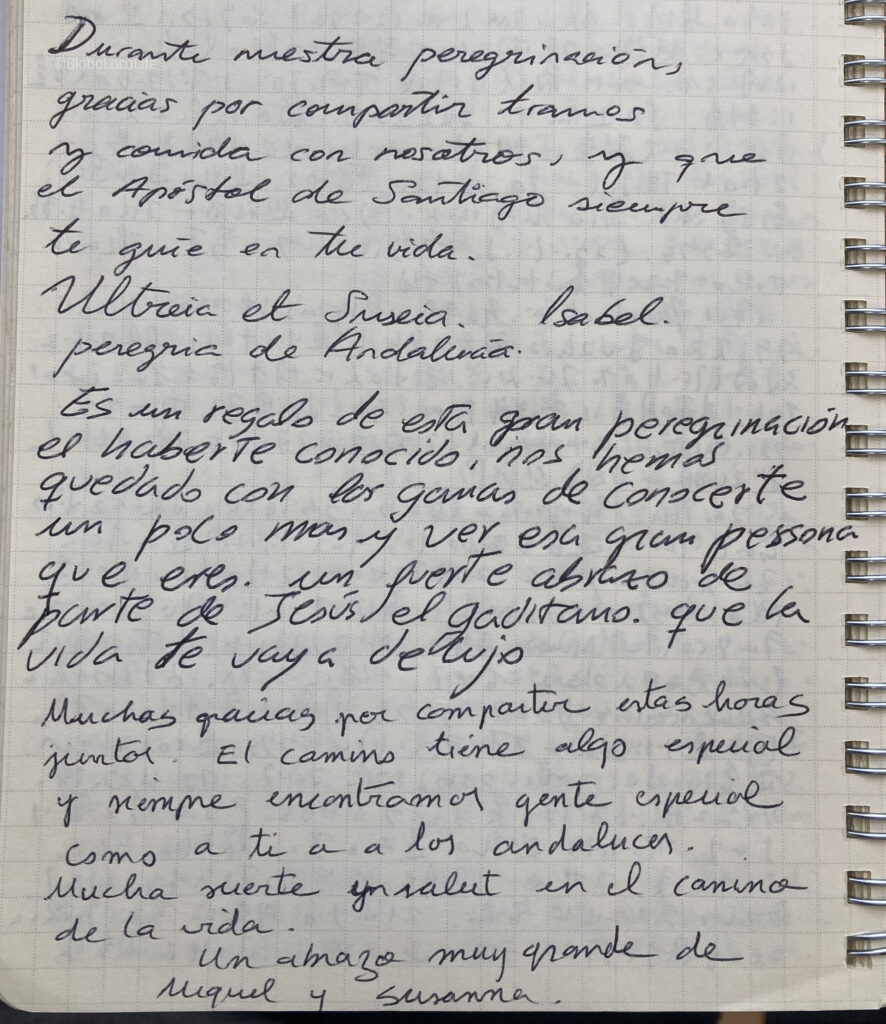 Durante nuestra peregrinación,
@GloboLocoLife
gracias por compartir tramos
y comida con nosotros, y que
el Apóstol de Santiago siempre
te guíe en tu vida.
Ultreia et Suseia. Isabel.
peregria de Andalucía.
Es un regalo de esta gran peregrinación
el haberte conocido, nos hemos
quedado con las ganas de conocerte
un poco mas y ver esa gran persona
que eres. un fuerte abrazo de
parte de Jesús el gaditano. que la
vida te vaya de lujo
Muchas gracias por compartir estas horas
juntos. El camino tiene algo especial
y siempre encontramos gente especial
como a ti a a los andaluces.
Mucha suerte y salut en el camino
de la vida.
Un abrazo muy grande de
Miquel y Susanna.